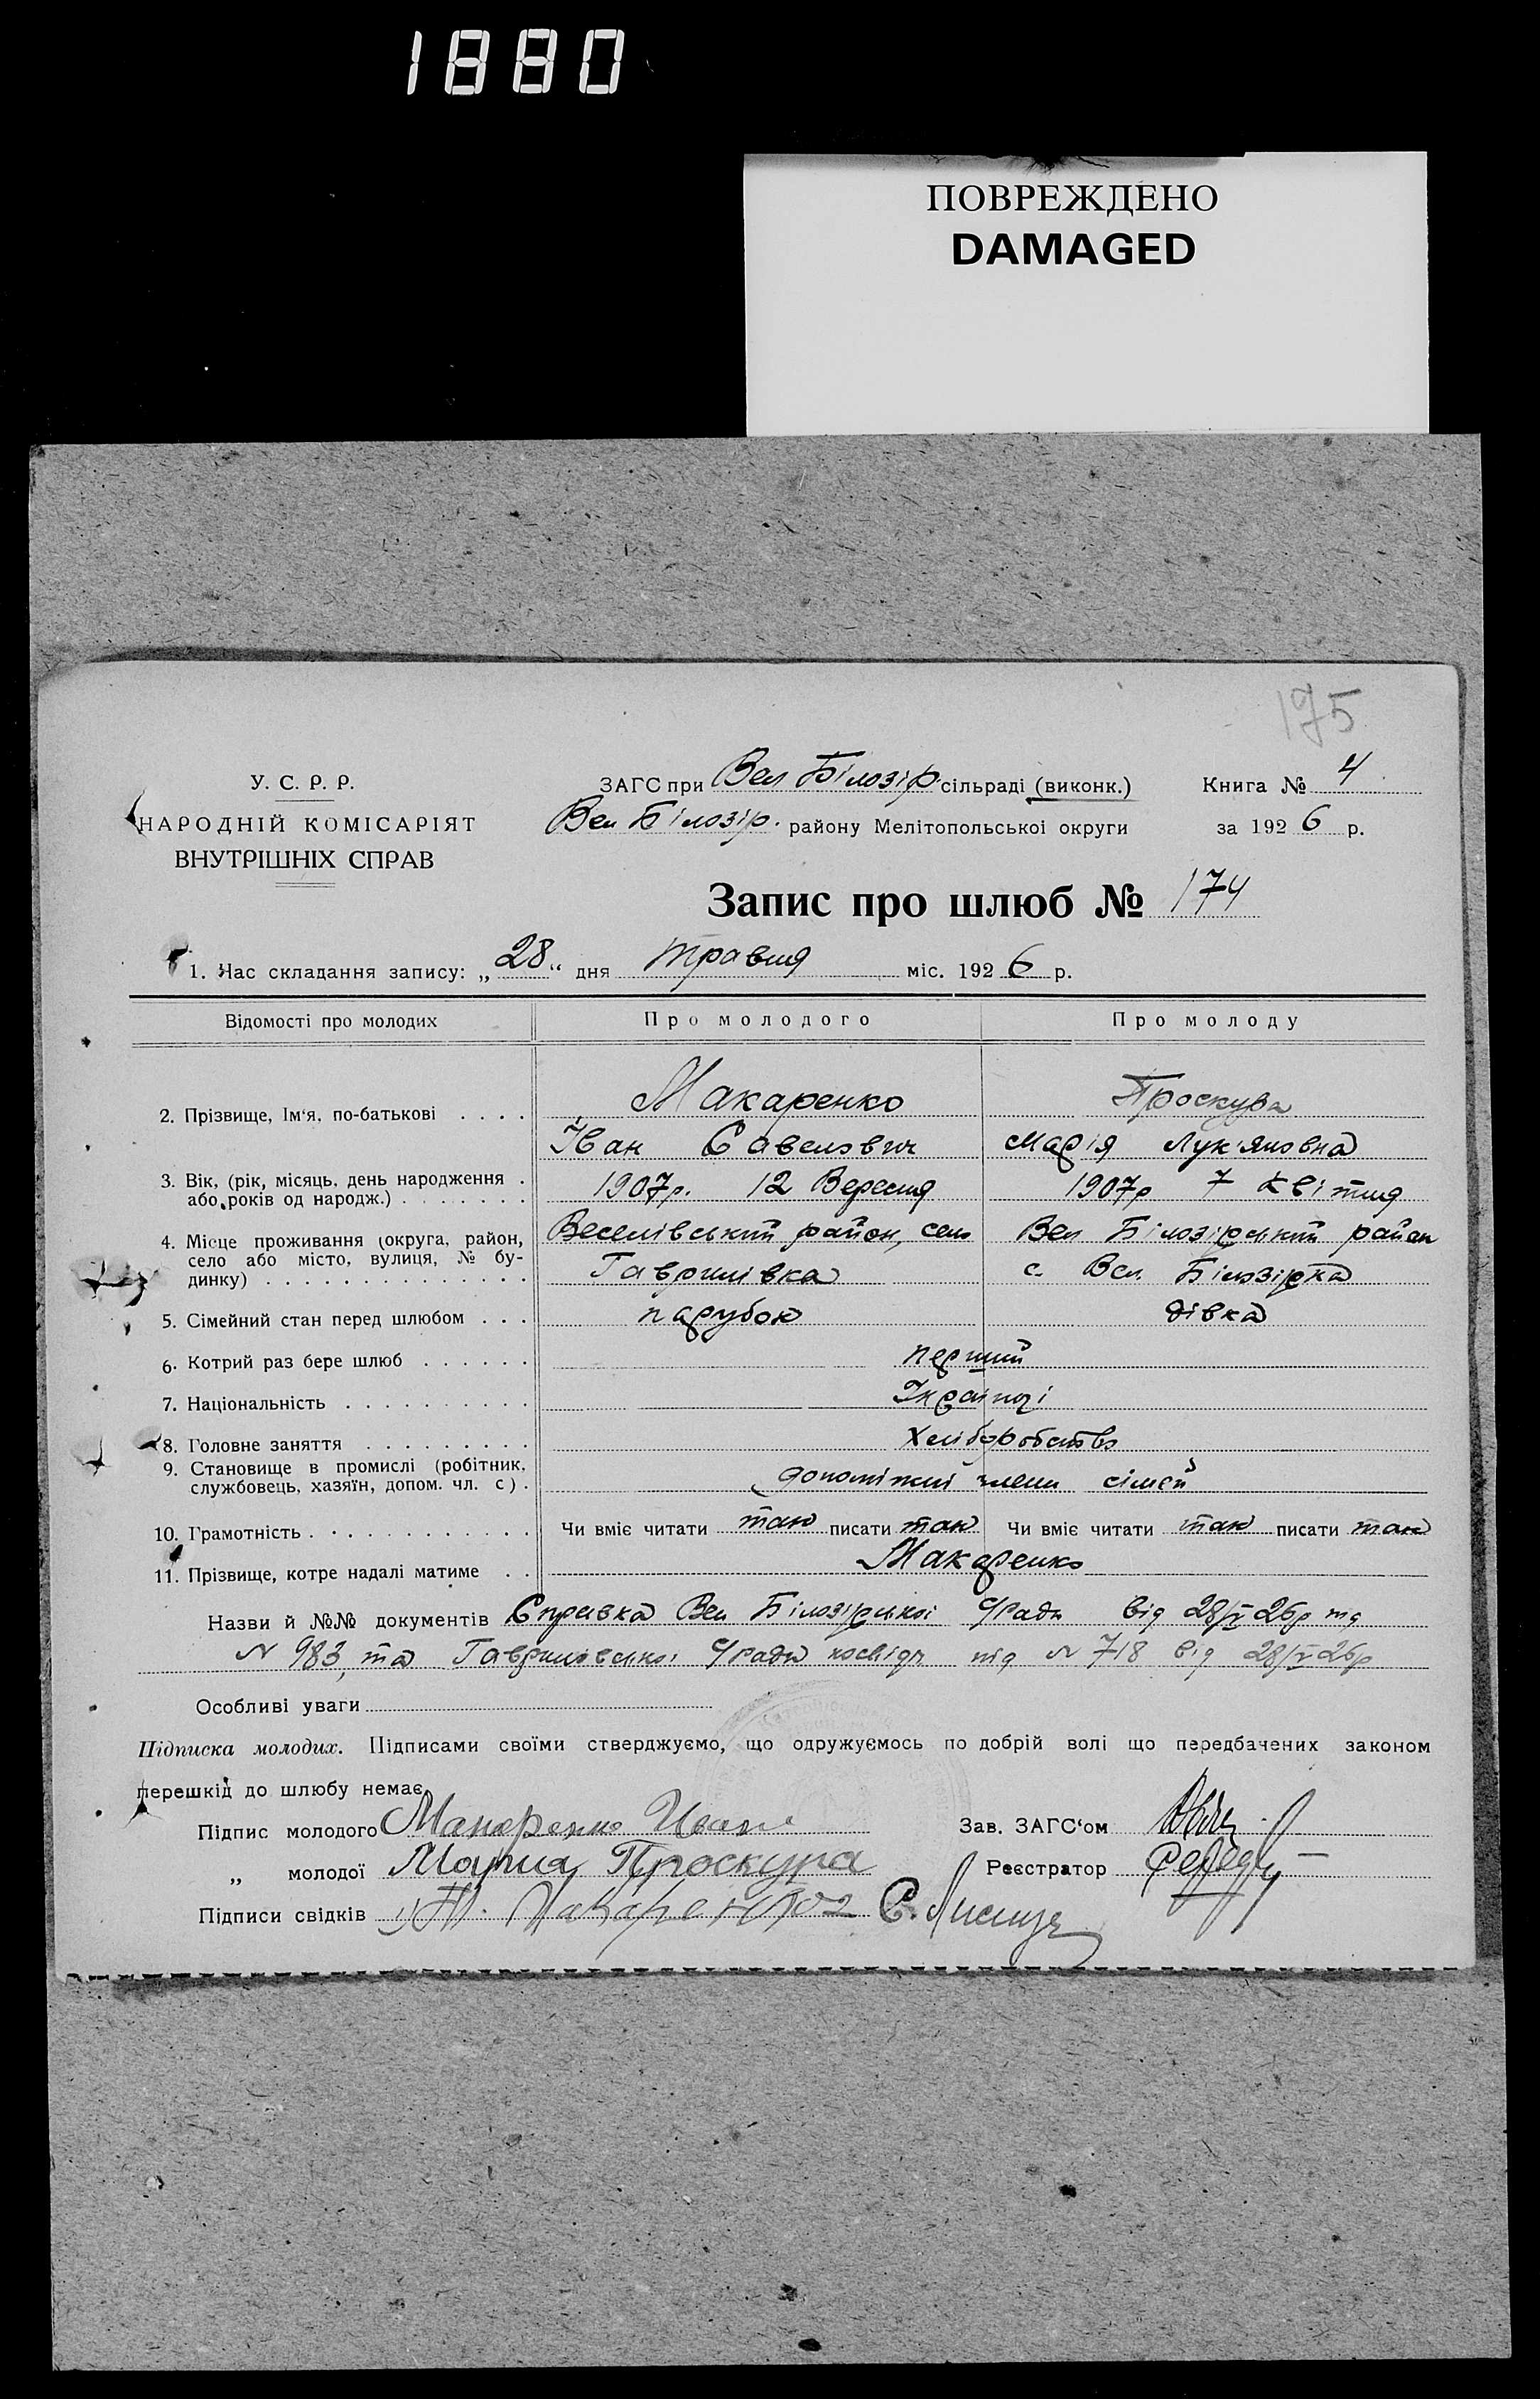 1880
ПОВРЕЖДЕНО
DAMAGED
175
У. С. Р. Р.
НАРОДНІЙ КОМІСАРІЯТ
ВНУТРІШНІХ СПРАВ
ЗАГС при Вел Білозір. сільраді (виконк.)
Вел Білозір. району Мелітопольської округи
Книга № 4
за 1926 р.
Запис про шлюб № 174
1. Час складання запису: „28“ дня травня міс. 1926 р.
Відомості про молодих Про молодого Про молоду
2. Прізвище, Ім'я, по-батькові . . . . Макаренко Проскура
Іван Савелович Марія Лук'яновна
3. Вік, (рік, місяць, день народження .
або років од народж.) . . . . . . . 1907р. 12 Вересня 1907р 7 Квітня
4. Місце проживання (округа, район,
село або місто, вулиця, № бу-
динку) . . . . . . . . . . . . . .
Веселівський район, село
Гаврилівка
Вел Білозірський район
с. Вел. Білозірка
5. Сімейний стан перед шлюбом . . . парубок дівка
6. Котрий раз бере шлюб . . . . . . перший
7. Національність . . . . . . . . . . Українці
8. Головне заняття . . . . . . . . . Хліборобство
9. Становище в промислі (робітник,
службовець, хазяїн, допом. чл. с) . допоміжні члени сімєй
10. Грамотність . . . . . . . . . . . . Чи вміє читати так писати так Чи вміє читати так писати так
11. Прізвище, котре надалі матиме . . Макаренко
Назви й №№ документів Справка Вел Білозірської С/ради від 28/V 26р під
N 983, та Гаврилівської С/ради посвідч під N 718 від 28/V 26р
Особливі уваги
Підписка молодих. Підписами своїми стверджуємо, що одружуємось по добрій волі що передбачених законом
перешкід до шлюбу немає.
Підпис молодого Макаренко Иван
„ молодої Мария Проскура
Підписи свідків Макаренко С. Лисица
Зав. ЗАГС'ом
Реєстратор